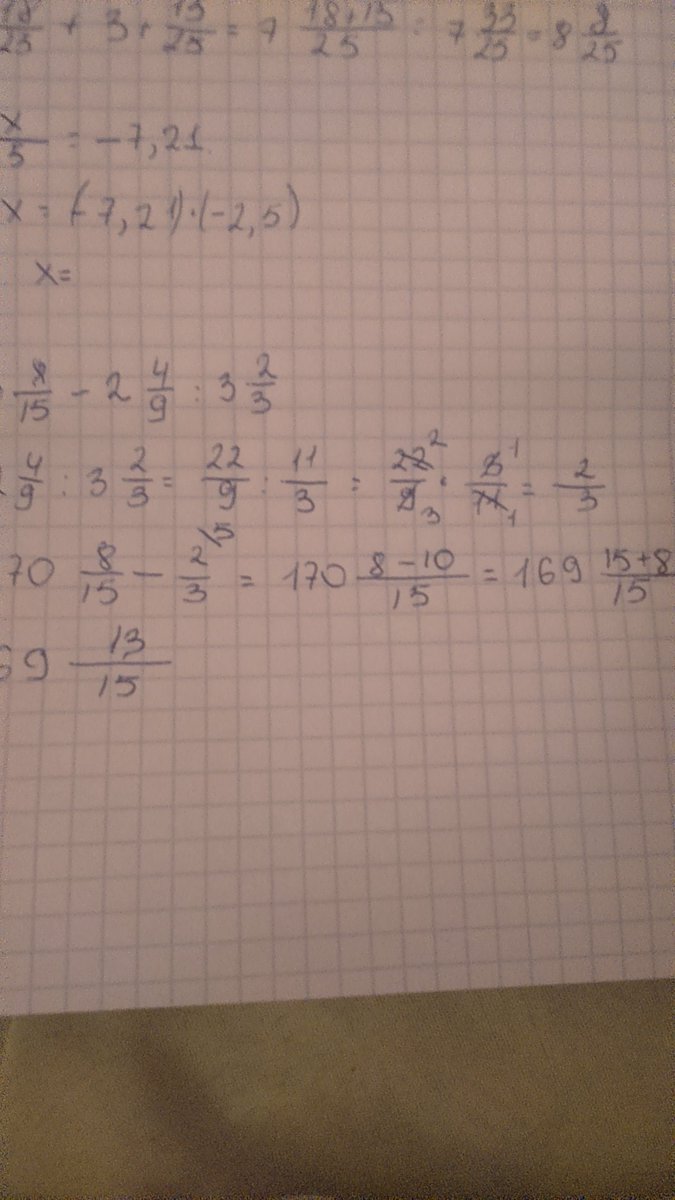 18/25 + 3 + 15/25 = 7 18+15/25 = 7 33/25 = 8 8/25
x/5 = -7,21
x = (-7,21)·(-2,5)
x=
8/15 - 2 4/9 : 3 2/3
4/9 : 3 2/3 = 22/9 : 11/3 = 22 2/9 3 · 3 1/11 1 = 2/3
70 8/15 - 2/3 /5 = 170 8-10/15 = 169 15+8/15
69 13/15